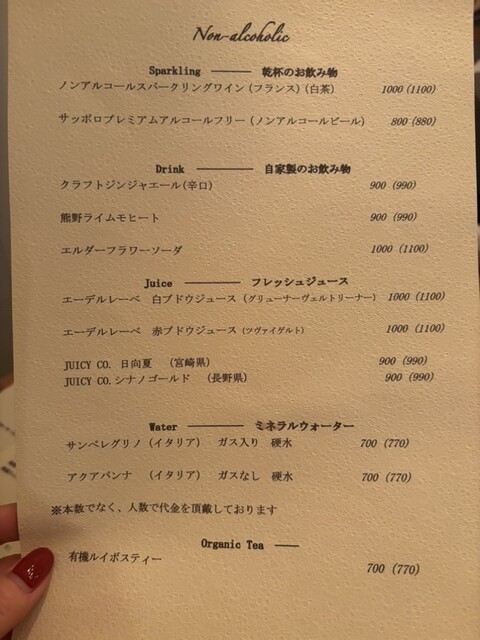 Non-alcoholic
Sparkling ——— 乾杯のお飲み物
ノンアルコールスパークリングワイン (フランス) (白茶) 1000 (1100)
サッポロプレミアムアルコールフリー (ノンアルコールビール) 800 (880)
Drink ——— 自家製のお飲み物
クラフトジンジャエール(辛口) 900 (990)
熊野ライムモヒート 900 (990)
エルダーフラワーソーダ 1000 (1100)
Juice ——— フレッシュジュース
エーデルレーベ 白ブドウジュース (グリューナーヴェルトリーナー) 1000 (1100)
エーデルレーベ 赤ブドウジュース (ツヴァイゲルト) 1000 (1100)
JUICY CO. 日向夏 (宮崎県) 900 (990)
JUICY CO. シナノゴールド (長野県) 900 (990)
Water ——— ミネラルウォーター
サンペレグリノ (イタリア) ガス入り 硬水 700 (770)
アクアパンナ (イタリア) ガスなし 硬水 700 (770)
※本数でなく、人数で代金を頂戴しております
Organic Tea ―
有機ルイボスティー 700 (770)